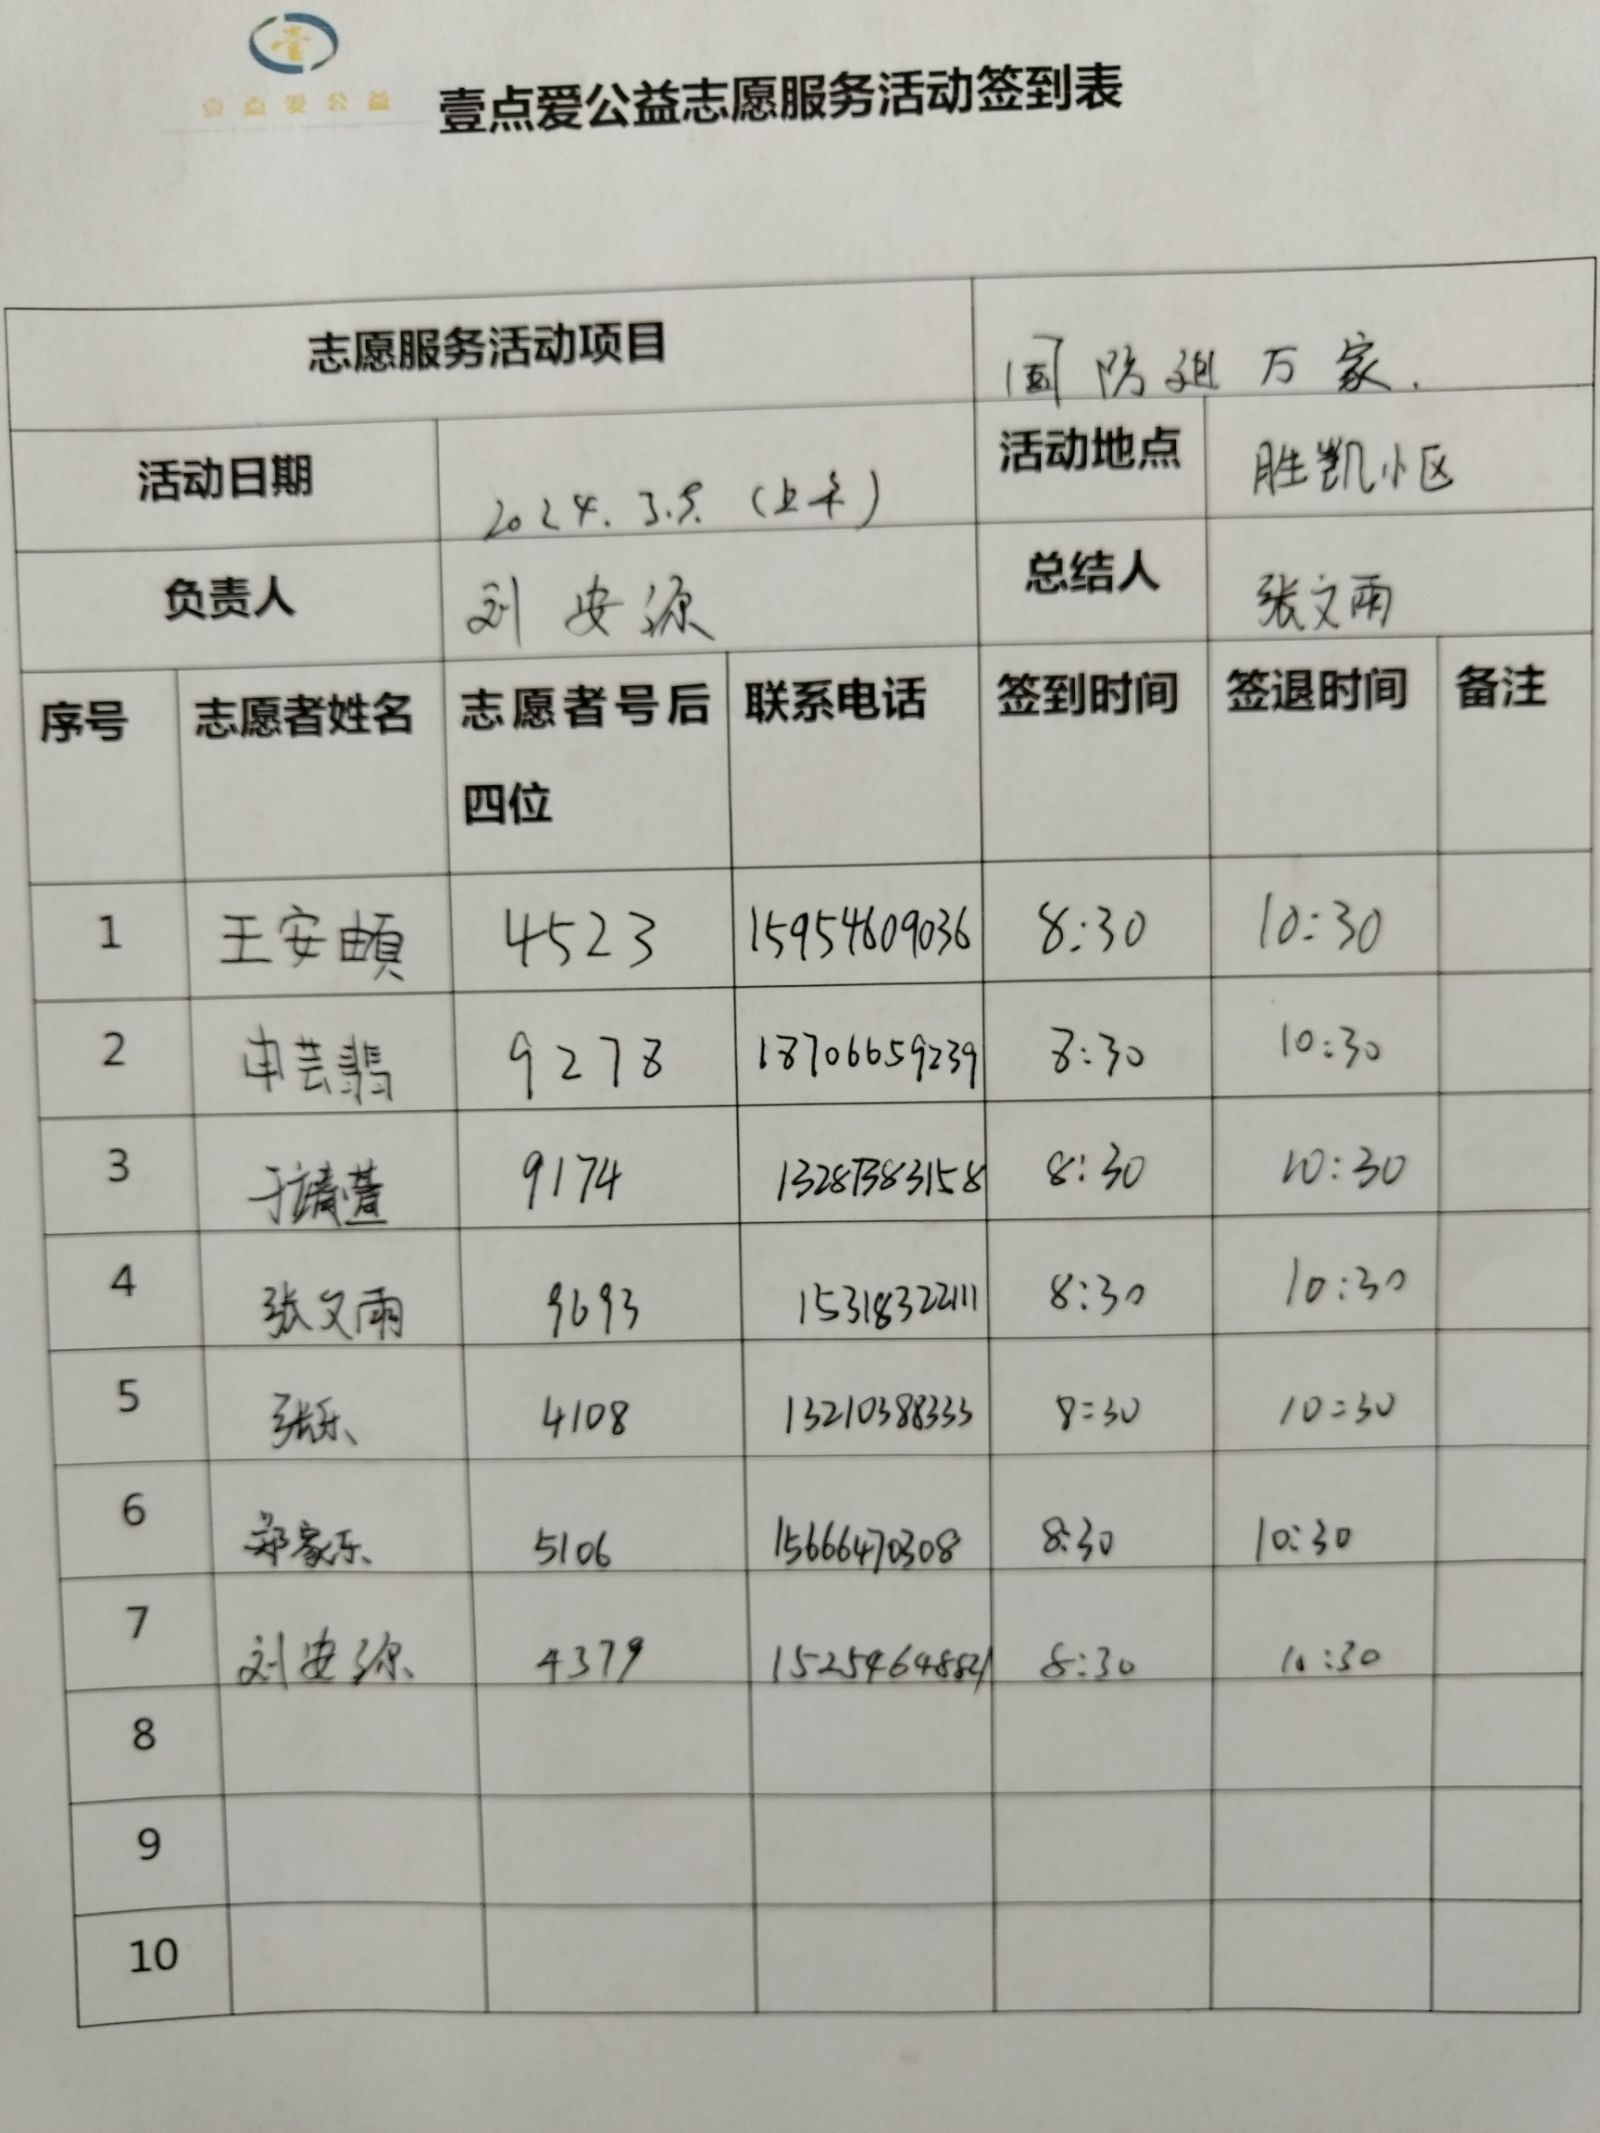 壹点爱公益
壹点爱公益志愿服务活动签到表
志愿服务活动项目 国防进万家.
活动日期 2024.3.9.(上午) 活动地点 胜凯小区
负责人 刘安源 总结人 张文雨
序号 志愿者姓名 志愿者号后四位 联系电话 签到时间 签退时间 备注
1 王安頔 4523 15954609036 8:30 10:30
2 申芸翡 9278 18706659239 8:30 10:30
3 于靖萱 9174 13287383158 8:30 10:30
4 张文雨 9693 15318322111 8:30 10:30
5 张乐 4108 13210388333 8:30 10:30
6 郑家乐 5106 15666470308 8:30 10:30
7 刘安源 4379 15254648821 8:30 10:30
8
9
10